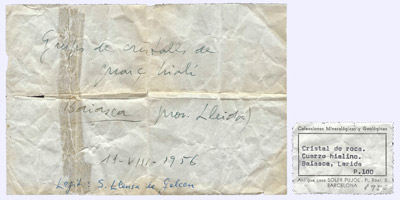 Grups de cristalls de
quars hialí
Baiasca (prov. Lleida)
19-VIII-1956
Legit: S. Llensa de
Colecciones Mineralógicas y Geológicas
Cristal de roca.
Cuarzo hialino.
Baiasca, Lerida
P.100
Antigua casa SOLER PUJOL, P. Real,
BARCELONA